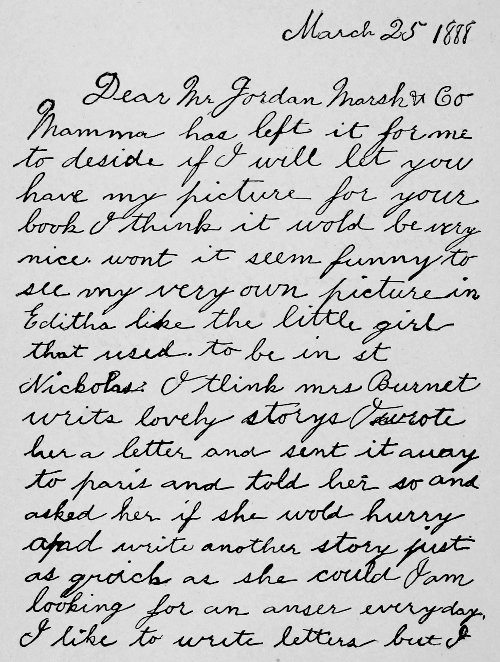 March 25 1888
Dear Mr Jordan Marsh & Co
Mamma has left it for me
to deside if I will let you
have my picture for your
book I think it wold be very
nice. wont it seem funny to
see my very own picture in
Editha like the little girl
that used. to be in st
Nickolas? I tlink mrs Burnet
writs lovely storys I wrote
her a letter and sent it away
to paris and told her so and
asked her if she wold hurry
and write another story just
as qroick as she could I am
looking for an anser everyday,
I like to write letters but I